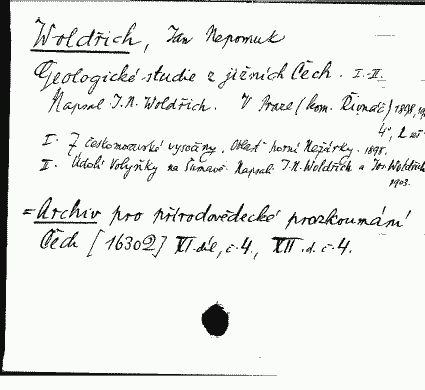 Woldřich, Jan Nepomuk
Geologické studie z jižních Čech. I.-II.
Napsal J.N. Woldřich. V Praze (kom. Řivnáč) 1898,
4°, 2 
I. Z českomoravské vysočiny. Oblast horní Nežárky. 1898.
II. Údolí Volyňky na Šumavě. Napsali J.N. Woldřich a Jos. Woldřich
1903.
= Archiv pro přírodovědecké prozkoumání
Čech [16302] XI. díl, č. 4., XII. d. č. 4.